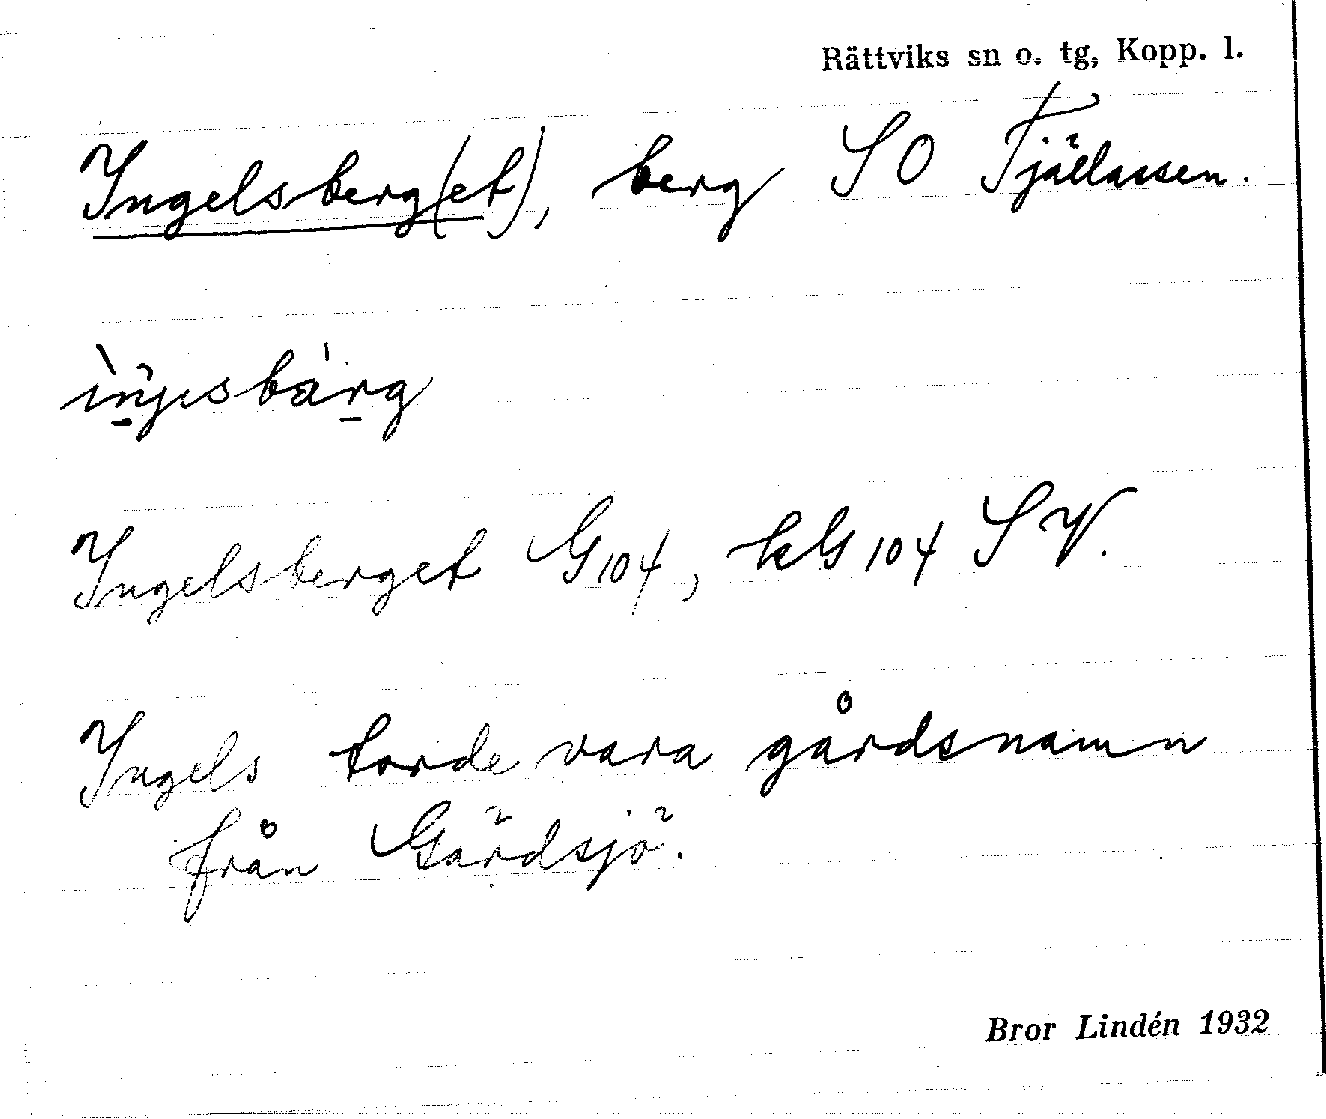 Rättviks sn o. tg, Kopp. l.
Ingelsberg(et), berg SO Fjällassen.
Ingelsberget G104, kG104 SV.
Ingels torde vara gårdsnamn
från Gärdsjö.
Bror Lindén 1932